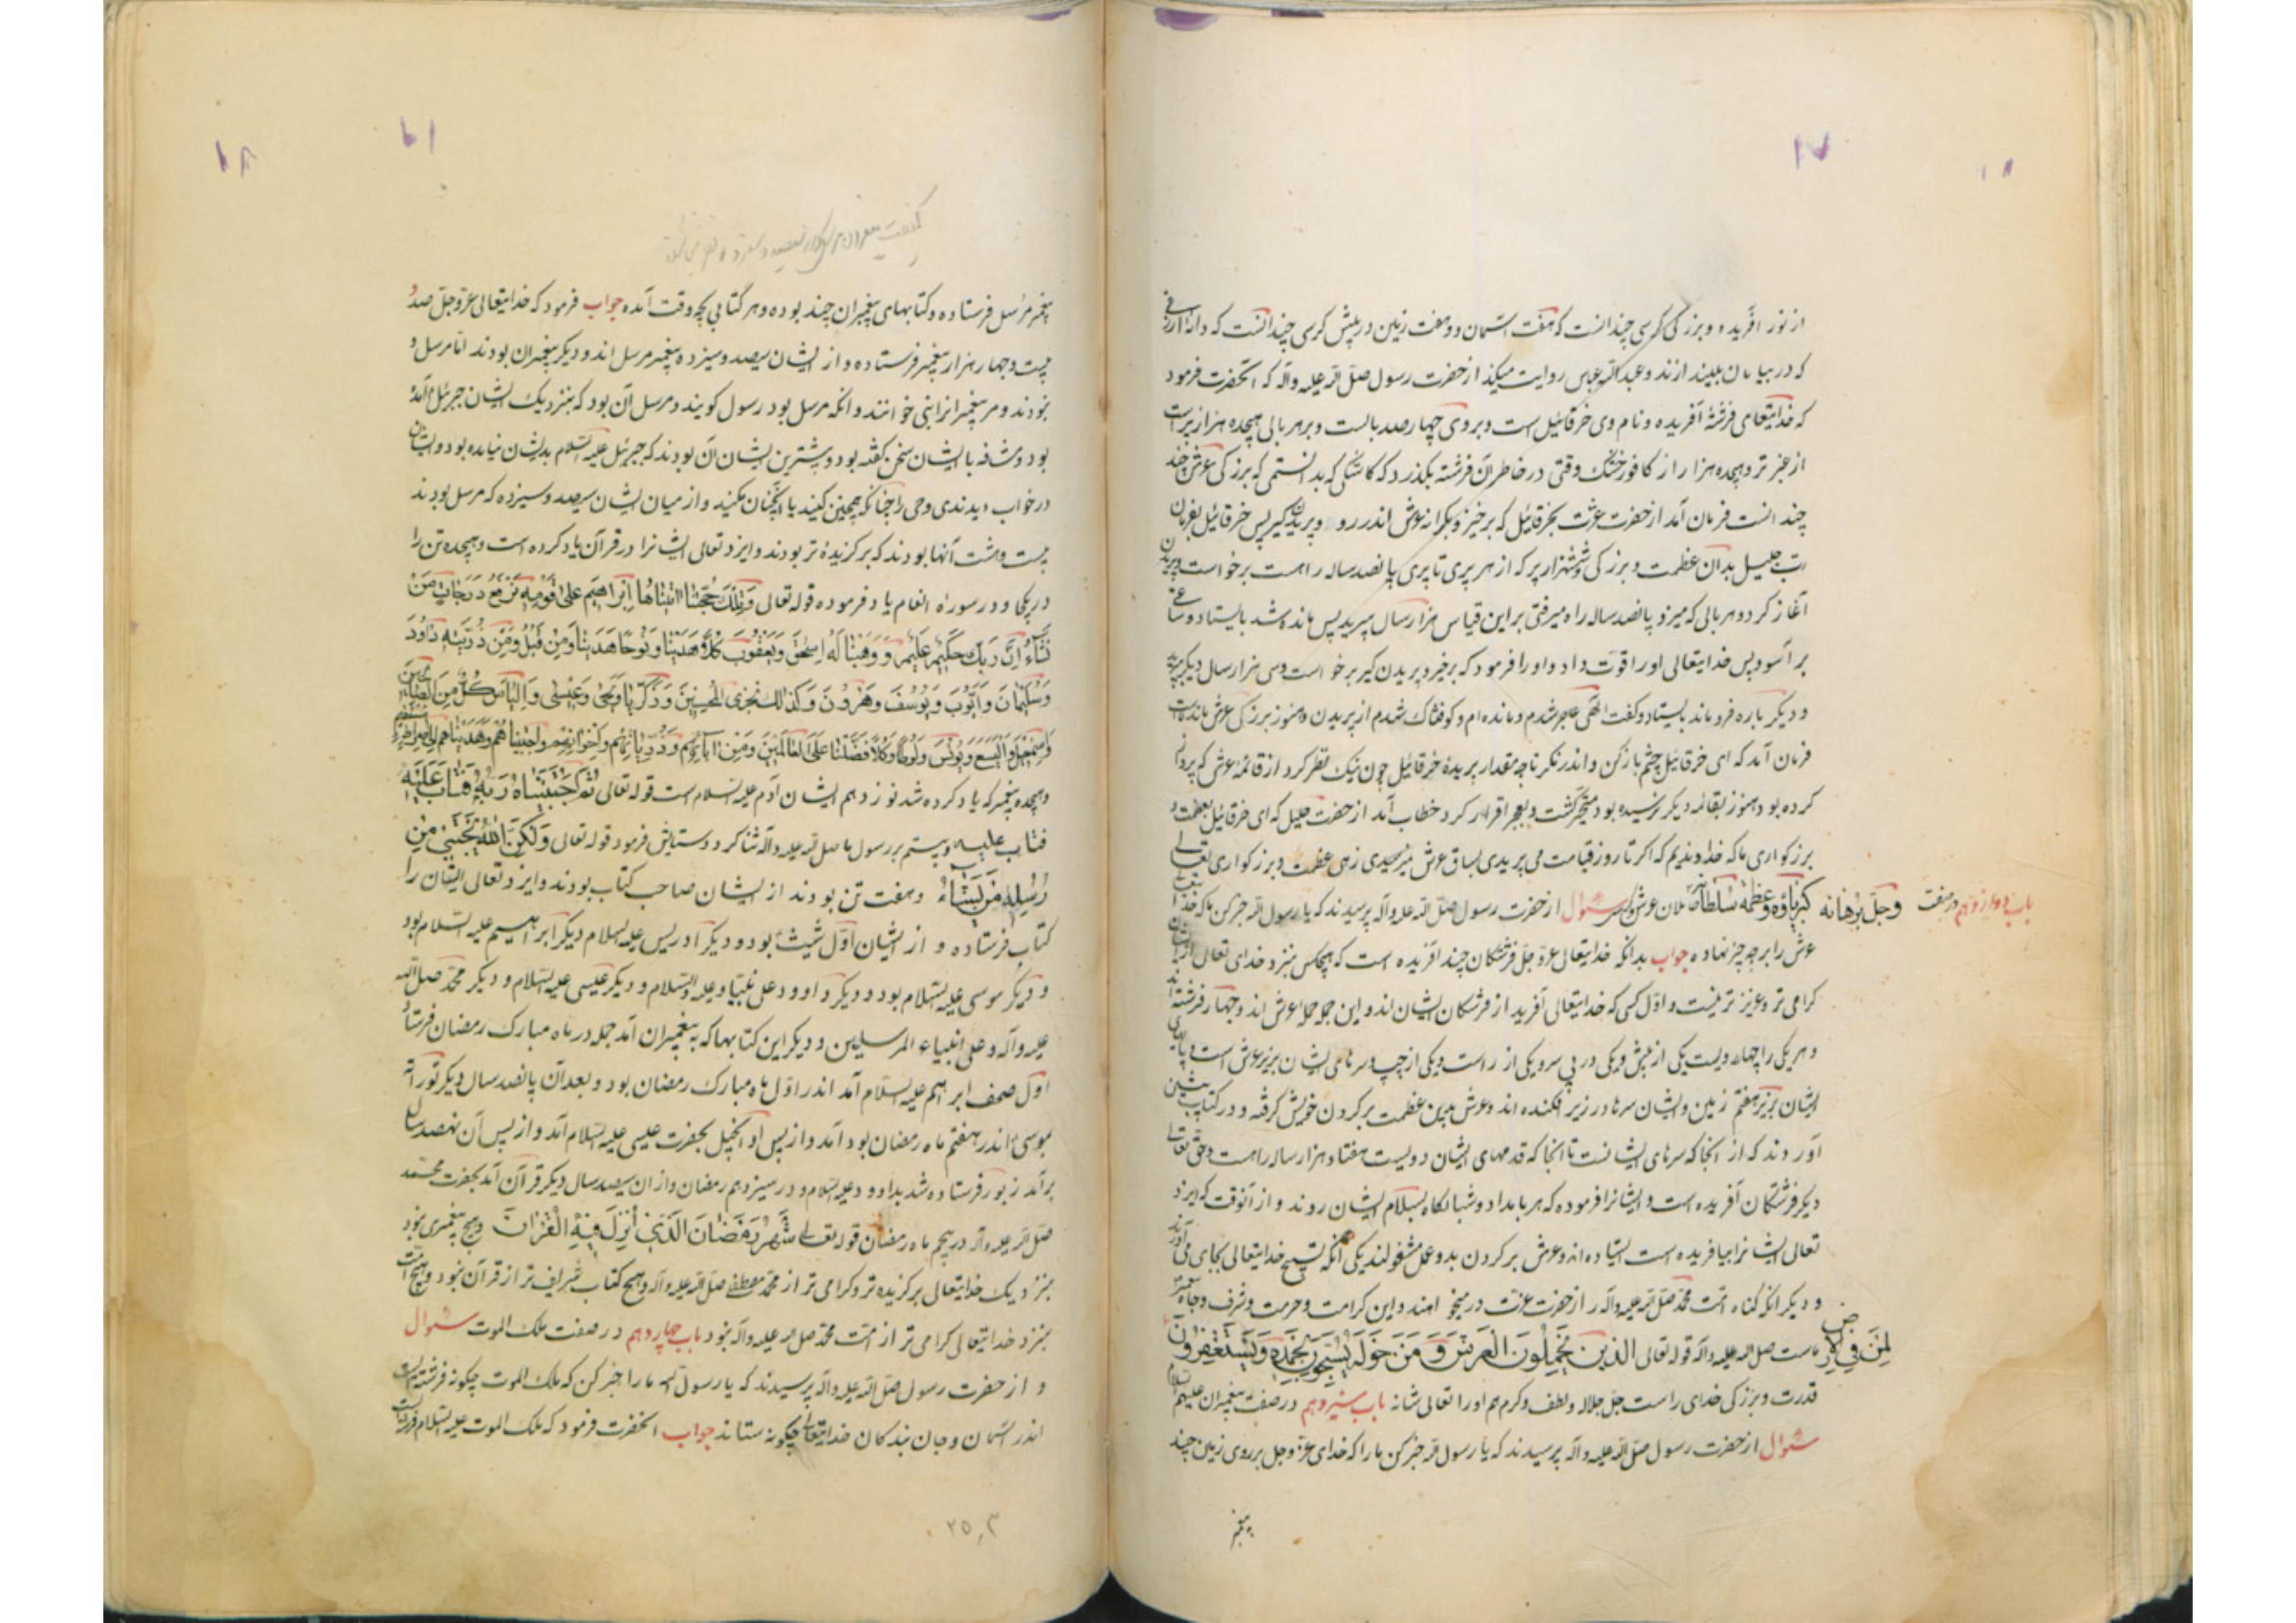 ۱۷
از نور آفریده و بزرگی کرسی چندانست که هفت آسمان و هفت زمین در پیش کرسی چندانست که دانهٔ ارزنی
که در بیابان بیندازند و عبدالله عباس روایت میکند از حضرت رسول صلی الله علیه و آله که آنحضرت فرمود
که خدایتعالی فرشتهٔ آفریده و نام وی خرقائیل است و بر وی چهارصد بالست و بر هر بالی هیجده هزار پر است
از عنبر تر و هیجده هزار از کافور خشک وقتی در خاطر آن فرشته بگذرد که کاشکی که بدانستمی که بزرگی عرش خدا
چند است فرمان آمد از حضرت عزت بخرقائیل که برخیز و بکرانه عرش اندر رو و پریدن گیر پس خرقائیل بفرمان
رب جلیل بدان عظمت و بزرگی و ششهزار پر که از هر پری تا پری پانصد ساله راهست برخواست و پریدن
آغاز کرد و هر بالی که میزد پانصد ساله راه میرفتی براین قیاس هزار سال میپرید پس مانده شد بایستاد و ساعتی
برآسود پس خدایتعالی او را قوت داد و او را فرمود که برخیز و پریدن گیر برخواست و سی هزار سال دیگر بپرید
و دیگر باره فرو ماند بایستاد و گفت الهی عاجز شدم و مانده ام و کوفتناک شدم از پریدن و هنوز بزرگی عرش مانده است
فرمان آمد که ای خرقائیل چشم باز کن و اندر نگر تا چه مقدار پریدهٔ خرقائیل چون نیک نظر کرد از قائمه عرش که پرواز
کرده بود هنوز بقائمه دیگر نرسیده بود متحیر گشت و بعجز اقرار کرد خطاب آمد از حضرت جلیل که ای خرقائیل بعظمت و
بزرگواری ما که خداوندیم که اگر تا روز قیامت می پریدی بساق عرش نمیرسیدی زهی عظمت و بزرگواری تعالی
کبریاؤه و عظمة سلطانه وجل برهانه باب دوازدهم در صفت حاملان عرش و کرسی سئوال از حضرت رسول صلی الله علیه و آله پرسیدند که یا رسول الله خبر کن ما که خدایتعالی
عرش را بر چه چیز نهاده جواب بدانکه خدایتعالی عز و جل فرشتگان چند آفریده است که هیچکس بنزد خدای تعالی از ایشان
گرامی تر و عزیز تر نیست و اول کسی که خدایتعالی آفرید از فرشتگان ایشان اند و این جمله حمله عرش اند و چهار فرشته اند
و هر یکی را چهار رویست یکی از پیش و یکی در پی سر و یکی از راست و یکی از چپ و سرهای ایشان بزیر عرش است و پایهای
ایشان بزیر هفتم زمین و ایشان سرها در زیر افکنده اند و عرش بدین عظمت بر گردن خویش گرفته و در کتاب پیشین
آوردند که از آنجا که سرهای ایشانست تا آنجا که قدمهای ایشان دویست هفتاد هزار ساله راهست و حق تعالی
دیگر فرشتگان آفریده است و ایشانرا فرموده که هر بامداد و شبانگاه بسلام ایشان روند و از آنوقت که ایزد
تعالی ایشانرا بیافریده است ایستاده اند و عرش بر گردن بدو عمل مشغولند یکی آنکه تسبیح خدایتعالی بجای می آورند
و دیگر آنکه گناه امت محمد صلی الله علیه و آله را از حضرت عزت درمیخواهند و این کرامت و حرمت و شرف و جاه پیغمبر
ماست صلی الله علیه و آله قوله تعالی الذین یحملون العرش و من حوله یسبحون بحمده و یستغفرون لمن فی الارض
قدرت و بزرگی خدای راست جل جلاله و لطف و کرم هم او را تعالی شانه باب سیزدهم در صفت پیغمبران علیهم السلام
سئوال از حضرت رسول صلی الله علیه و آله پرسیدند که یا رسول الله خبر کن ما را که خدای عز وجل بر روی زمین چند
پیغمبر
۱۸
پیغمبر مرسل فرستاده و کتابهای پیغمبران چند بوده و هر کتابی بچه وقت آمده جواب فرمود که خدایتعالی عز و جل صد و
بیست و چهار هزار پیغمبر فرستاده و از ایشان سیصد و سیزده پیغمبر مرسل اند و دیگر پیغمبران بودند اما مرسل و
نبودند و مر پیغمبرانرا نبی خوانند و آنکه مرسل بود رسول گویند و مرسل آن بود که بنزدیک ایشان جبرئیل ع آمده
بود و مشافه با ایشان سخن گفته بود و بیشترین ایشان آن بودند که جبرئیل علیه السلام بدیشان نیامده بود و ایشان
در خواب دیدندی وحی را چنانکه همچنین کنید یا آنچنان مکنید و از میان ایشان سیصد و سیزده که مرسل بودند
بیست و هشت آنها بودند که برگزیدهٔ تر بودند و ایزد تعالی ایشانرا در قرآن یاد کرده است و هیجده تن را
در یکجا و در سوره انعام یاد فرموده قوله تعالی وَتِلْكَ حُجَّتُنَا اٰتَيْنَاهَا اِبْرَاهِيْمَ عَلٰى قَوْمِهِ نَرْفَعُ دَرَجَاتٍ مَنْ
نَشَاءُ اِنَّ رَبَّكَ حَكِيمٌ عَلِيمٌ وَوَهَبْنَا لَهُ اِسْحٰقَ وَيَعْقُوْبَ كُلًّا هَدَيْنَا وَنُوْحًا هَدَيْنَا مِنْ قَبْلُ وَمِنْ ذُرِّيَّتِهِ دَاوُدَ
وَسُلَيْمَانَ وَاَيُّوْبَ وَيُوْسُفَ وَهٰرُوْنَ وَكَذٰلِكَ نَجْزِى الْمُحْسِنِيْنَ وَزَكَرِيَّا وَيَحْيٰى وَعِيسٰى وَاِلْيَاسَ كُلٌّ مِنَ الصَّالِحِيْنَ
وَاِسْمٰعِيْلَ وَالْيَسَعَ وَيُوْنُسَ وَلُوْطًا وَكُلًّا فَضَّلْنَا عَلَى الْعَالَمِيْنَ وَمِنْ اٰبَائِهِمْ وَذُرِّيَّاتِهِمْ وَاِخْوَانِهِمْ وَاجْتَبَيْنَاهُمْ وَهَدَيْنَاهُمْ اِلٰى صِرَاطٍ مُسْتَقِيْمٍ
و هیجده پیغمبر که یاد کرده شد نوزدهم ایشان آدم علیه السلام است قوله تعالی ثُمَّ اجْتَبَيٰهُ رَبُّهُ فَتَابَ عَلَيْهِ
فتاب علیه و بیستم بر رسول ما صلی الله علیه و آله ثنا کرد و ستایش فرمود قوله تعالی وَلٰكِنَّ اللّٰهَ يَجْتَبِي مِنْ
رُسُلِهِ مَنْ يَشَاءُ و هفت تن بودند از ایشان صاحب کتاب بودند و ایزد تعالی ایشان را
کتاب فرستاده و از ایشان اول شیث بود و دیگر ادریس علیه السلام دیگر ابراهیم علیه السلام بود
و دیگر موسی علیه السلام بود و دیگر داوود علی نبینا و علیه السلام و دیگر عیسی علیه السلام و دیگر محمد صلی الله
علیه و آله و علی انبیاء المرسلین و دیگر این کتابها که به پیغمبران آمد جمله در ماه مبارک رمضان فرستاد
اول صحف ابراهیم علیه السلام آمد اندر اول ماه مبارک رمضان بود و بعد از آن پانصد سال دیگر تورات
بموسی اندر هفتم ماه رمضان بود آمد و از پس او انجیل بحضرت عیسی علیه السلام آمد و از پس آن نهصد سال
برآمد زبور فرستاده شد بداوود علیه السلام و در سیزدهم رمضان و از ان سیصد سال دیگر قرآن آمد بحضرت محمد
صلی الله علیه و آله در پنجم ماه رمضان قوله تعالی شَهْرُ رَمَضَانَ الَّذِيْ اُنْزِلَ فِيْهِ الْقُرْاٰنَ و هیچ پیغمبری نبود
بنزدیک خدایتعالی برگزیده تر و گرامی تر از محمد مصطفی صلی الله علیه و آله و هیچ کتاب شریف تر از قرآن نبود و هیچ امت
بنزد خدایتعالی گرامی تر از امت محمد صلی الله علیه و آله نبود باب چهاردهم در صفت ملک الموت سئوال
و از حضرت رسول صلی الله علیه و آله پرسیدند که یا رسول الله ما را خبر کن که ملک الموت چگونه فرشته است
اندر آسمان و جان بندگان خدایتعالی چگونه ستاند جواب آنحضرت فرمود که ملک الموت علیه السلام فرشته است